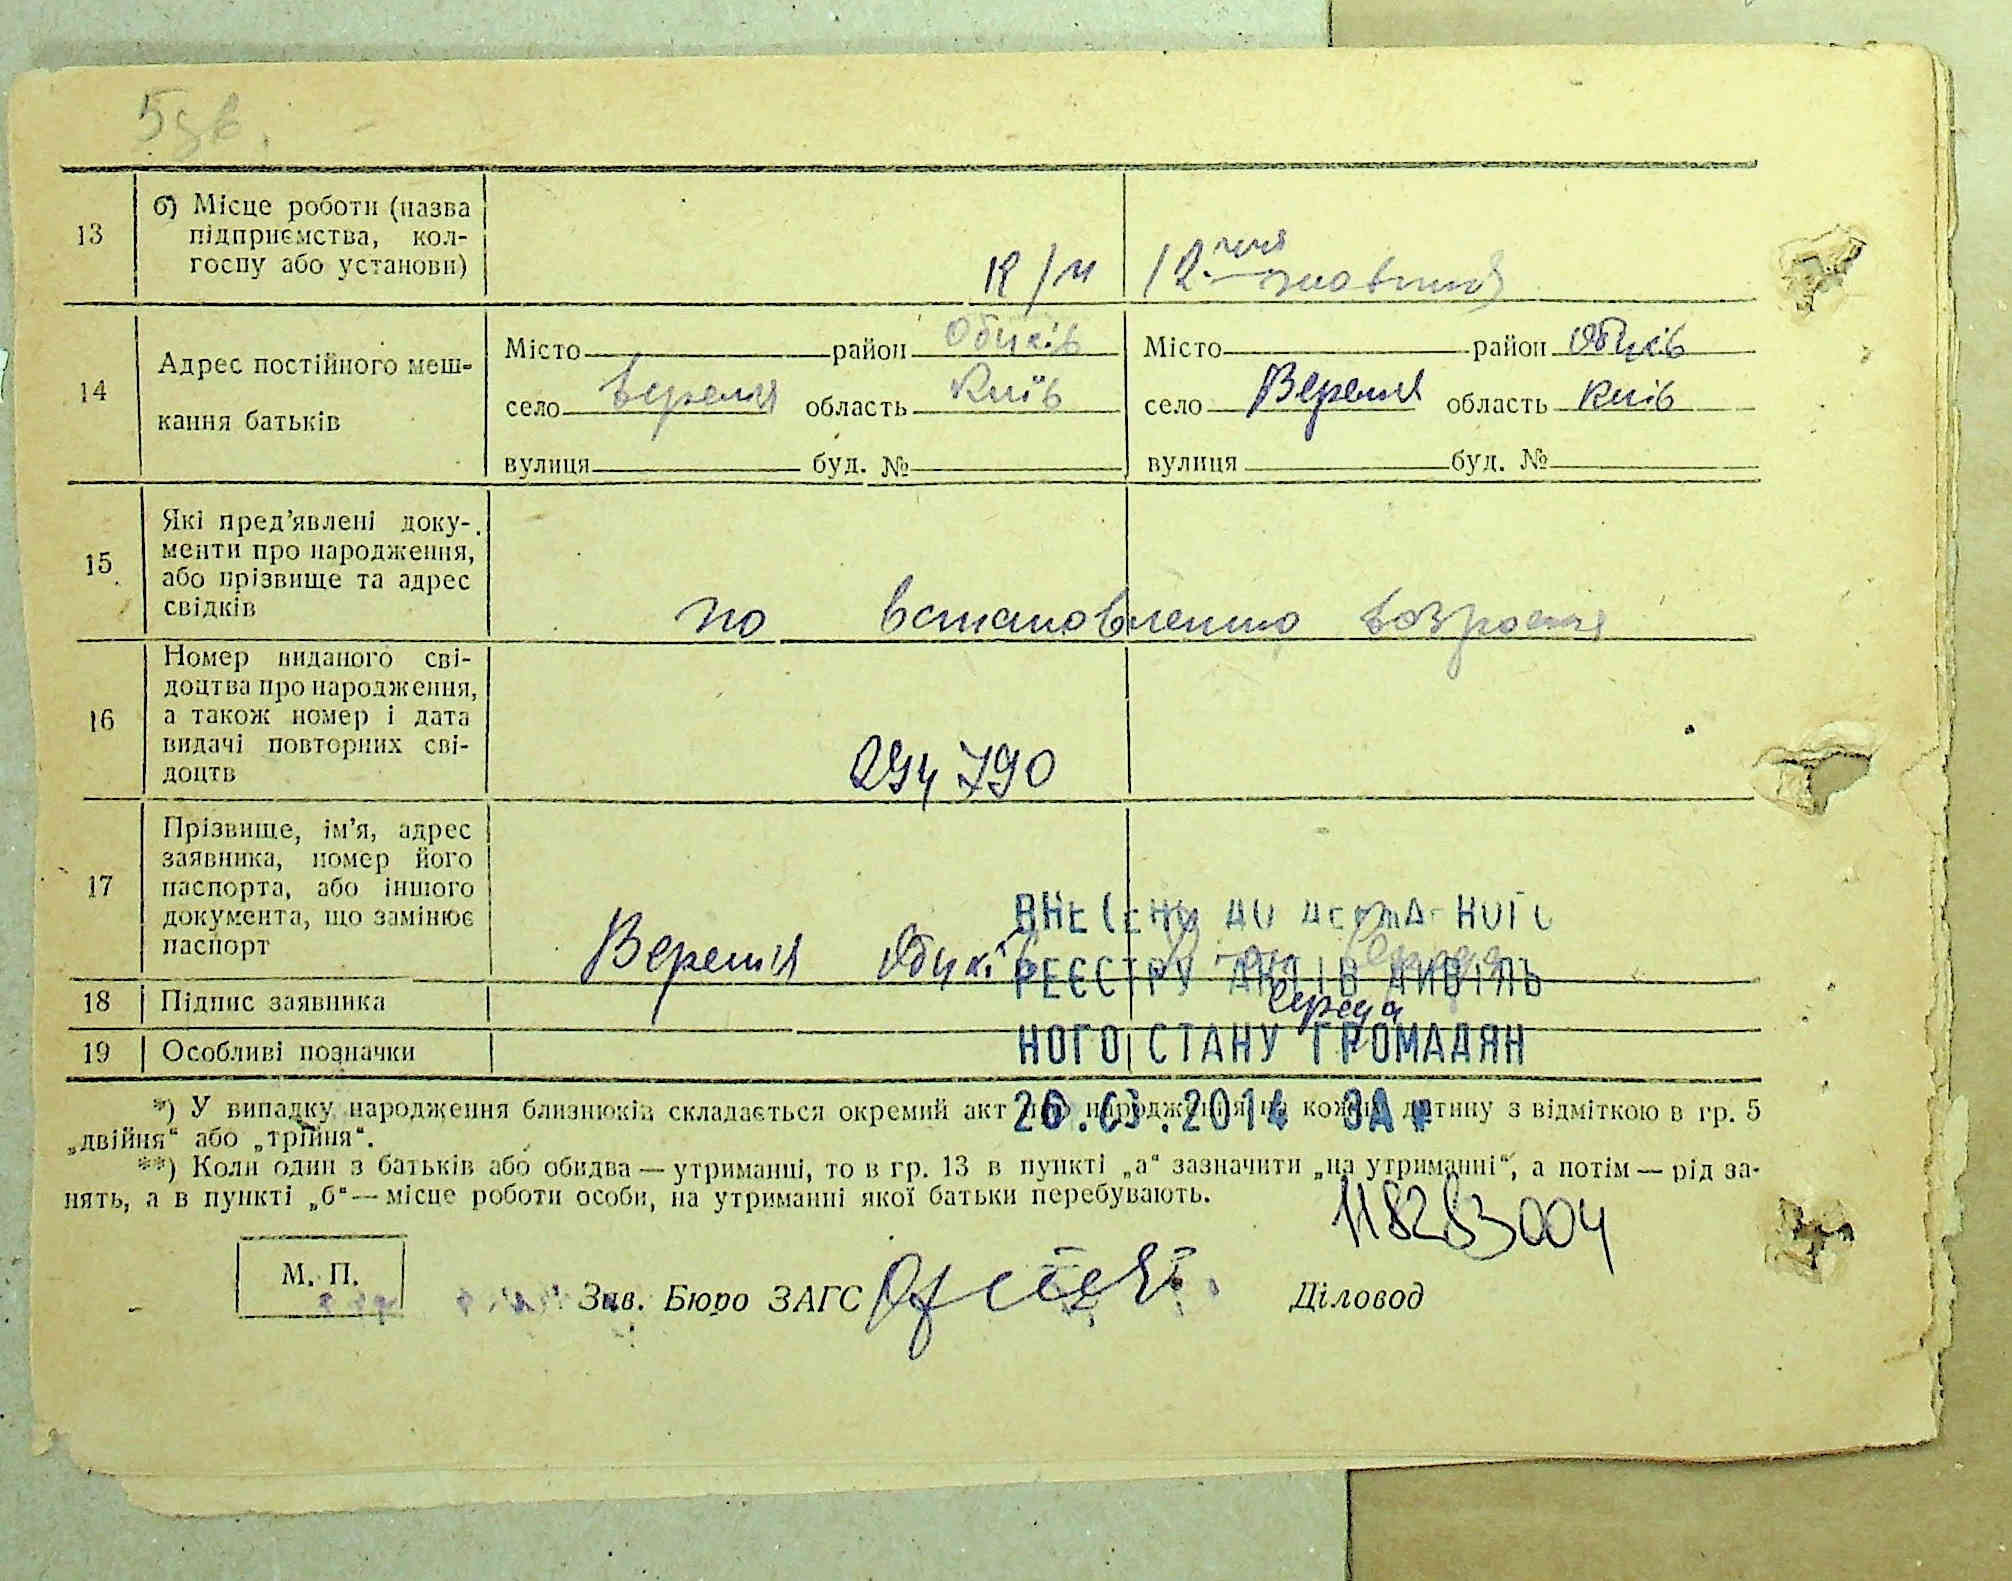 5 зв.
13
б) Місце роботи (назва
підприємства, кол-
госпу або установи)
К/г 12-річчя Жовтня
14
Адрес постійного меш-
кання батьків
Місто район Обухів
село Веремя область Київ
вулиця буд. №
Місто район Обухів
село Веремя область Київ
вулиця буд. №
15
Які пред’явлені доку-
менти про народження,
або прізвище та адрес
свідків
по встановленню возроста
16
Номер виданого сві-
доцтва про народження,
а також номер і дата
видачі повторних сві-
доцтв
294790
17
Прізвище, ім’я, адрес
заявника, номер його
паспорта, або іншого
документа, що замінює
паспорт
Веремя Обухів Середа
18 Підпис заявника
Середа
19 Особливі позначки
ВНЕСЕНО ДО ДЕРЖАВНОГО
РЕЄСТРУ АКТІВ ЦИВІЛЬ
НОГО СТАНУ ГРОМАДЯН
26.03.2014
*) У випадку народження близнюків складається окремий акт про народження на кожну дитину з відміткою в гр. 5
„двійня“ або „трійня“.
**) Коли один з батьків або обидва — утриманні, то в гр. 13 в пункті „а“ зазначити „на утриманні“, а потім — рід за-
нять, а в пункті „б“ — місце роботи особи, на утриманні якої батьки перебувають.
118283004
М. П.
Зав. Бюро ЗАГС
Діловод